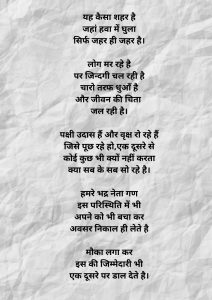 यह कैसा शहर है
जहां हवा में घुला
सिर्फ जहर ही जहर है।
लोग मर रहे है
पर जिन्दगी चल रही है
चारो तरफ धुआँ है
और जीवन की चिता
जल रही है।
पक्षी उदास हैं और वृक्ष रो रहे हैं
जिसे पूछ रहे हो,एक दूसरे से
कोई कुछ भी क्यों नहीं करता
क्या सब के सब सो रहे है।
हमरे भद्र नेता गण
इस परिस्थिति में भी
अपने को भी बचा कर
अवसर निकाल ही लेते है
मौका लगा कर
इस की जिम्मेदारी भी
एक दूसरे पर डाल देते है।